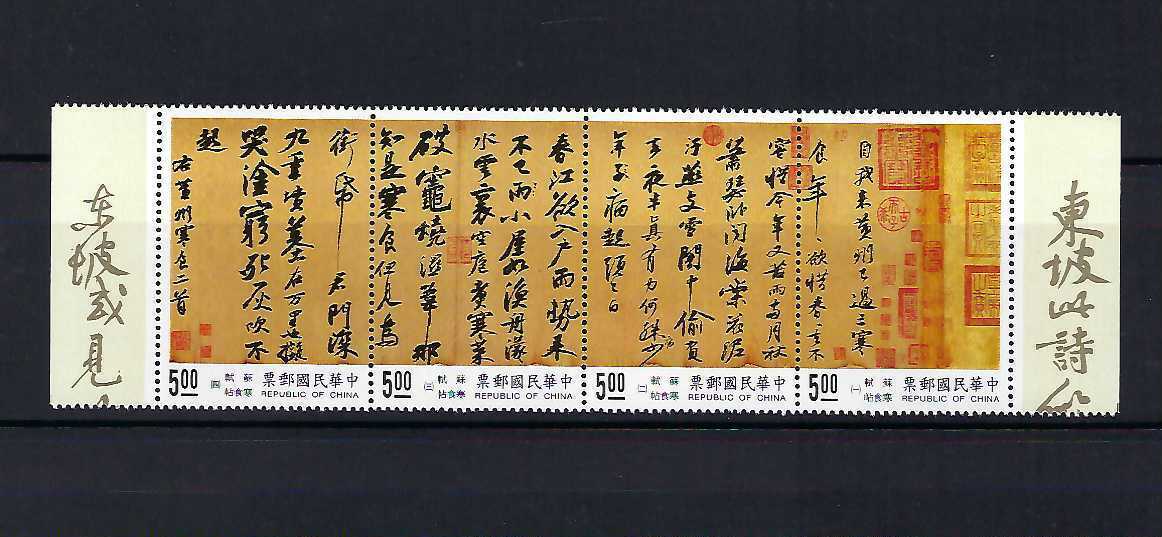 東坡此詩
自我來黃州已過三寒
食年、欲惜春、去不
容惜今年又苦雨兩月秋
蕭瑟臥聞海棠花泥
汙燕支雪闇中偷負
去夜半真有力何殊少
年子病起頭已白
春江欲入戶雨勢來
不已雨小屋如漁舟濛
水雲裏空庖煮寒菜
破竈燒濕葦那
知是寒食但見烏
銜帋 君門深
九重墳墓在万里也擬
哭塗窮死灰吹不
起
右黃州寒食二首
东坡或見
中華民國郵票
REPUBLIC OF CHINA
蘇軾寒食帖
(一)
5.00
中華民國郵票
REPUBLIC OF CHINA
蘇軾寒食帖
(二)
5.00
中華民國郵票
REPUBLIC OF CHINA
蘇軾寒食帖
(三)
5.00
中華民國郵票
REPUBLIC OF CHINA
蘇軾寒食帖
(四)
5.00